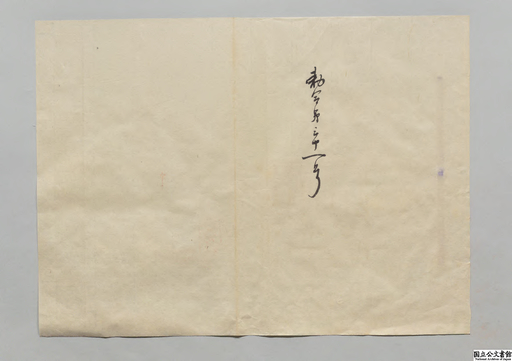 勅令第三十一号
国立公文書館
National Archives of Japan